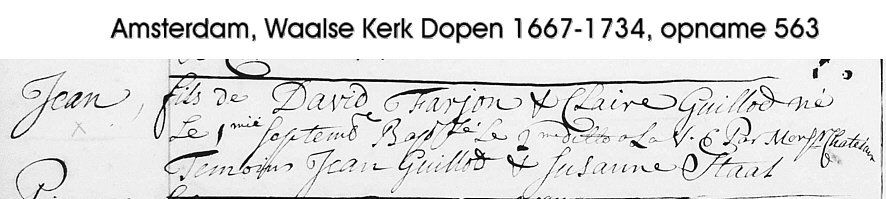 Amsterdam, Waalse Kerk Dopen 1667-1734, opname 563
Jean, fils de David Farjon & Claire Guillod né
Le 1mie Septembre Baptisé Le 9me ditto a La V. E Par Monsr Chatelain
Temoins Jean Guillod & Susanne Staal